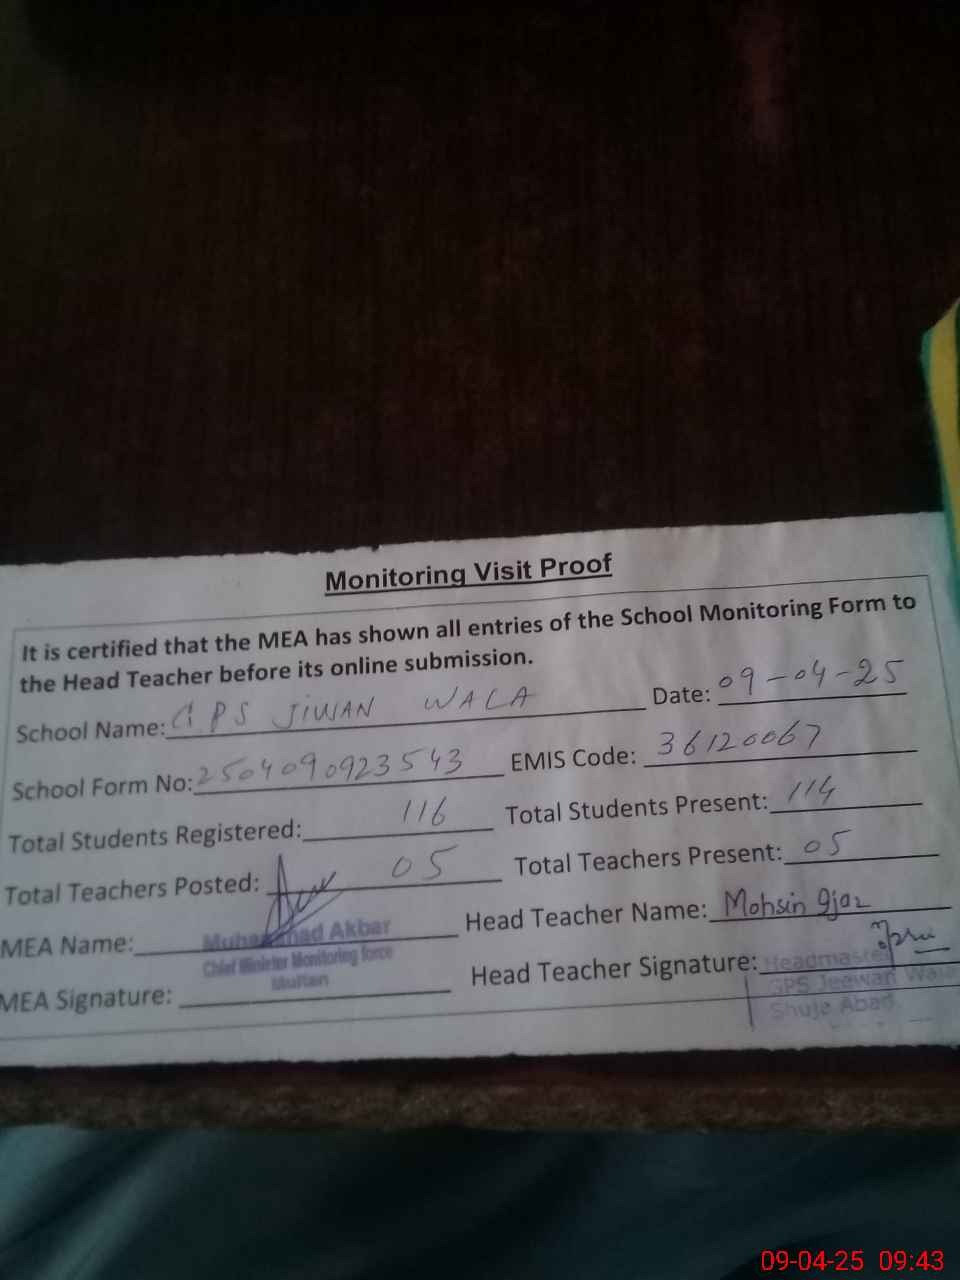 Monitoring Visit Proof
It is certified that the MEA has shown all entries of the School Monitoring Form to
the Head Teacher before its online submission.
School Name: GPS JIWAN WALA Date: 09-04-25
School Form No: 2504090923543 EMIS Code: 36120067
Total Students Registered: 116 Total Students Present: 114
Total Teachers Posted: 05 Total Teachers Present: 05
MEA Name: Muhammad Akbar Head Teacher Name: Mohsin Ijaz
Chief Minister Monitoring force
Multan
MEA Signature: Head Teacher Signature: Headmaster
GPS Jeewan Wala
Shuja Abad
09-04-25 09:43